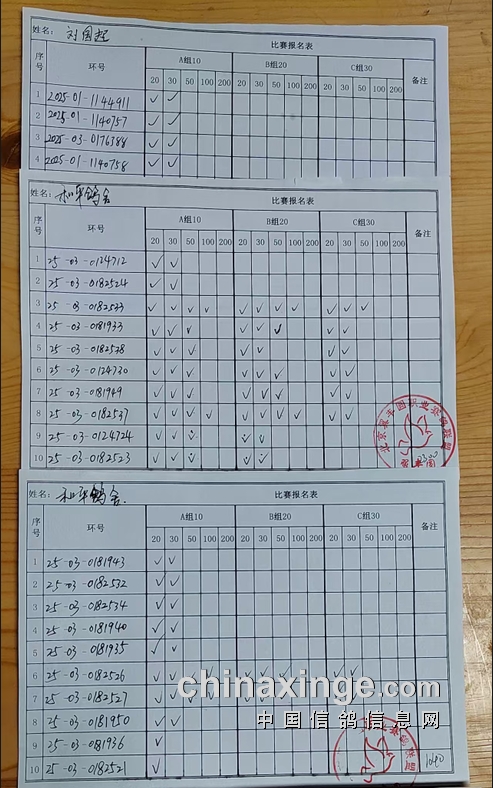 姓名: 刘国程
比赛报名表
序号 环号 A组10 B组20 C组30 备注
20 30 50 100 200 20 30 50 100 200 20 30 50 100 200
1 2025-01-1144911 ✓ ✓
2 2025-01-1140757 ✓ ✓
3 2025-03-0176388 ✓ ✓
4 2025-01-1140758 ✓ ✓
姓名: 和平鸽舍
比赛报名表
序号 环号 A组10 B组20 C组30 备注
20 30 50 100 200 20 30 50 100 200 20 30 50 100 200
1 25-03-0124712 ✓ ✓
2 25-03-0182524 ✓ ✓
3 25-03-0182533 ✓ ✓ ✓ ✓ ✓ ✓ ✓ ✓ ✓ ✓ ✓
4 25-03-0181933 ✓ ✓ ✓ ✓ ✓ ✓ ✓ ✓
5 25-03-0182528 ✓ ✓ ✓ ✓ ✓ ✓ ✓
6 25-03-0124730 ✓ ✓ ✓ ✓ ✓ ✓ ✓ ✓
7 25-03-0181949 ✓ ✓ ✓ ✓ ✓ ✓ ✓ ✓
8 25-03-0182537 ✓ ✓ ✓ ✓ ✓ ✓ ✓ ✓ ✓ ✓
9 25-03-0124724 ✓ ✓ ✓ ✓ ✓
10 25-03-0182523 ✓ ✓ ✓ ✓ ✓
2300
姓名: 和平鸽舍
比赛报名表
序号 环号 A组10 B组20 C组30 备注
20 30 50 100 200 20 30 50 100 200 20 30 50 100 200
1 25-03-0181943 ✓ ✓
2 25-03-0182532 ✓ ✓
3 25-03-0182534 ✓ ✓
4 25-03-0181940 ✓ ✓
5 25-03-0181935 ✓ ✓
6 25-03-0182526 ✓ ✓ ✓ ✓ ✓ ✓ ✓ ✓ ✓
7 25-03-0182527 ✓ ✓
8 25-03-0181950 ✓ ✓
9 25-03-0181936 ✓
10 25-03-0182521 ✓
1040
chinaxinge.com
中国信鸽信息网